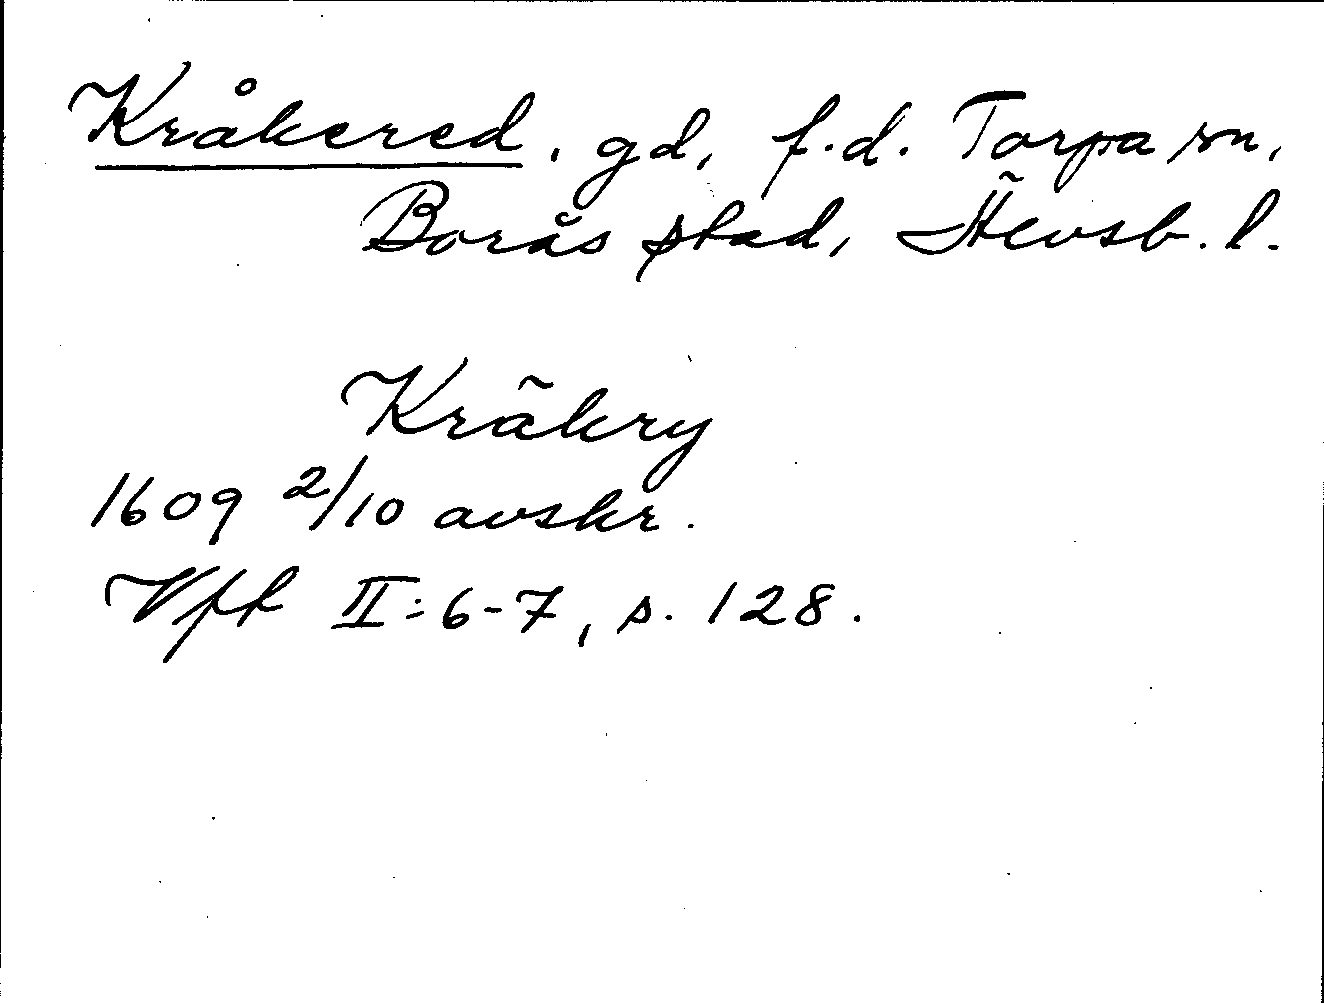 Kråkered, gd, f.d. Torpa sn,
Borås stad, Älvsb. l.
Kräkry
1609 2/10 avskr.
Vfk II:6-7, s. 128.